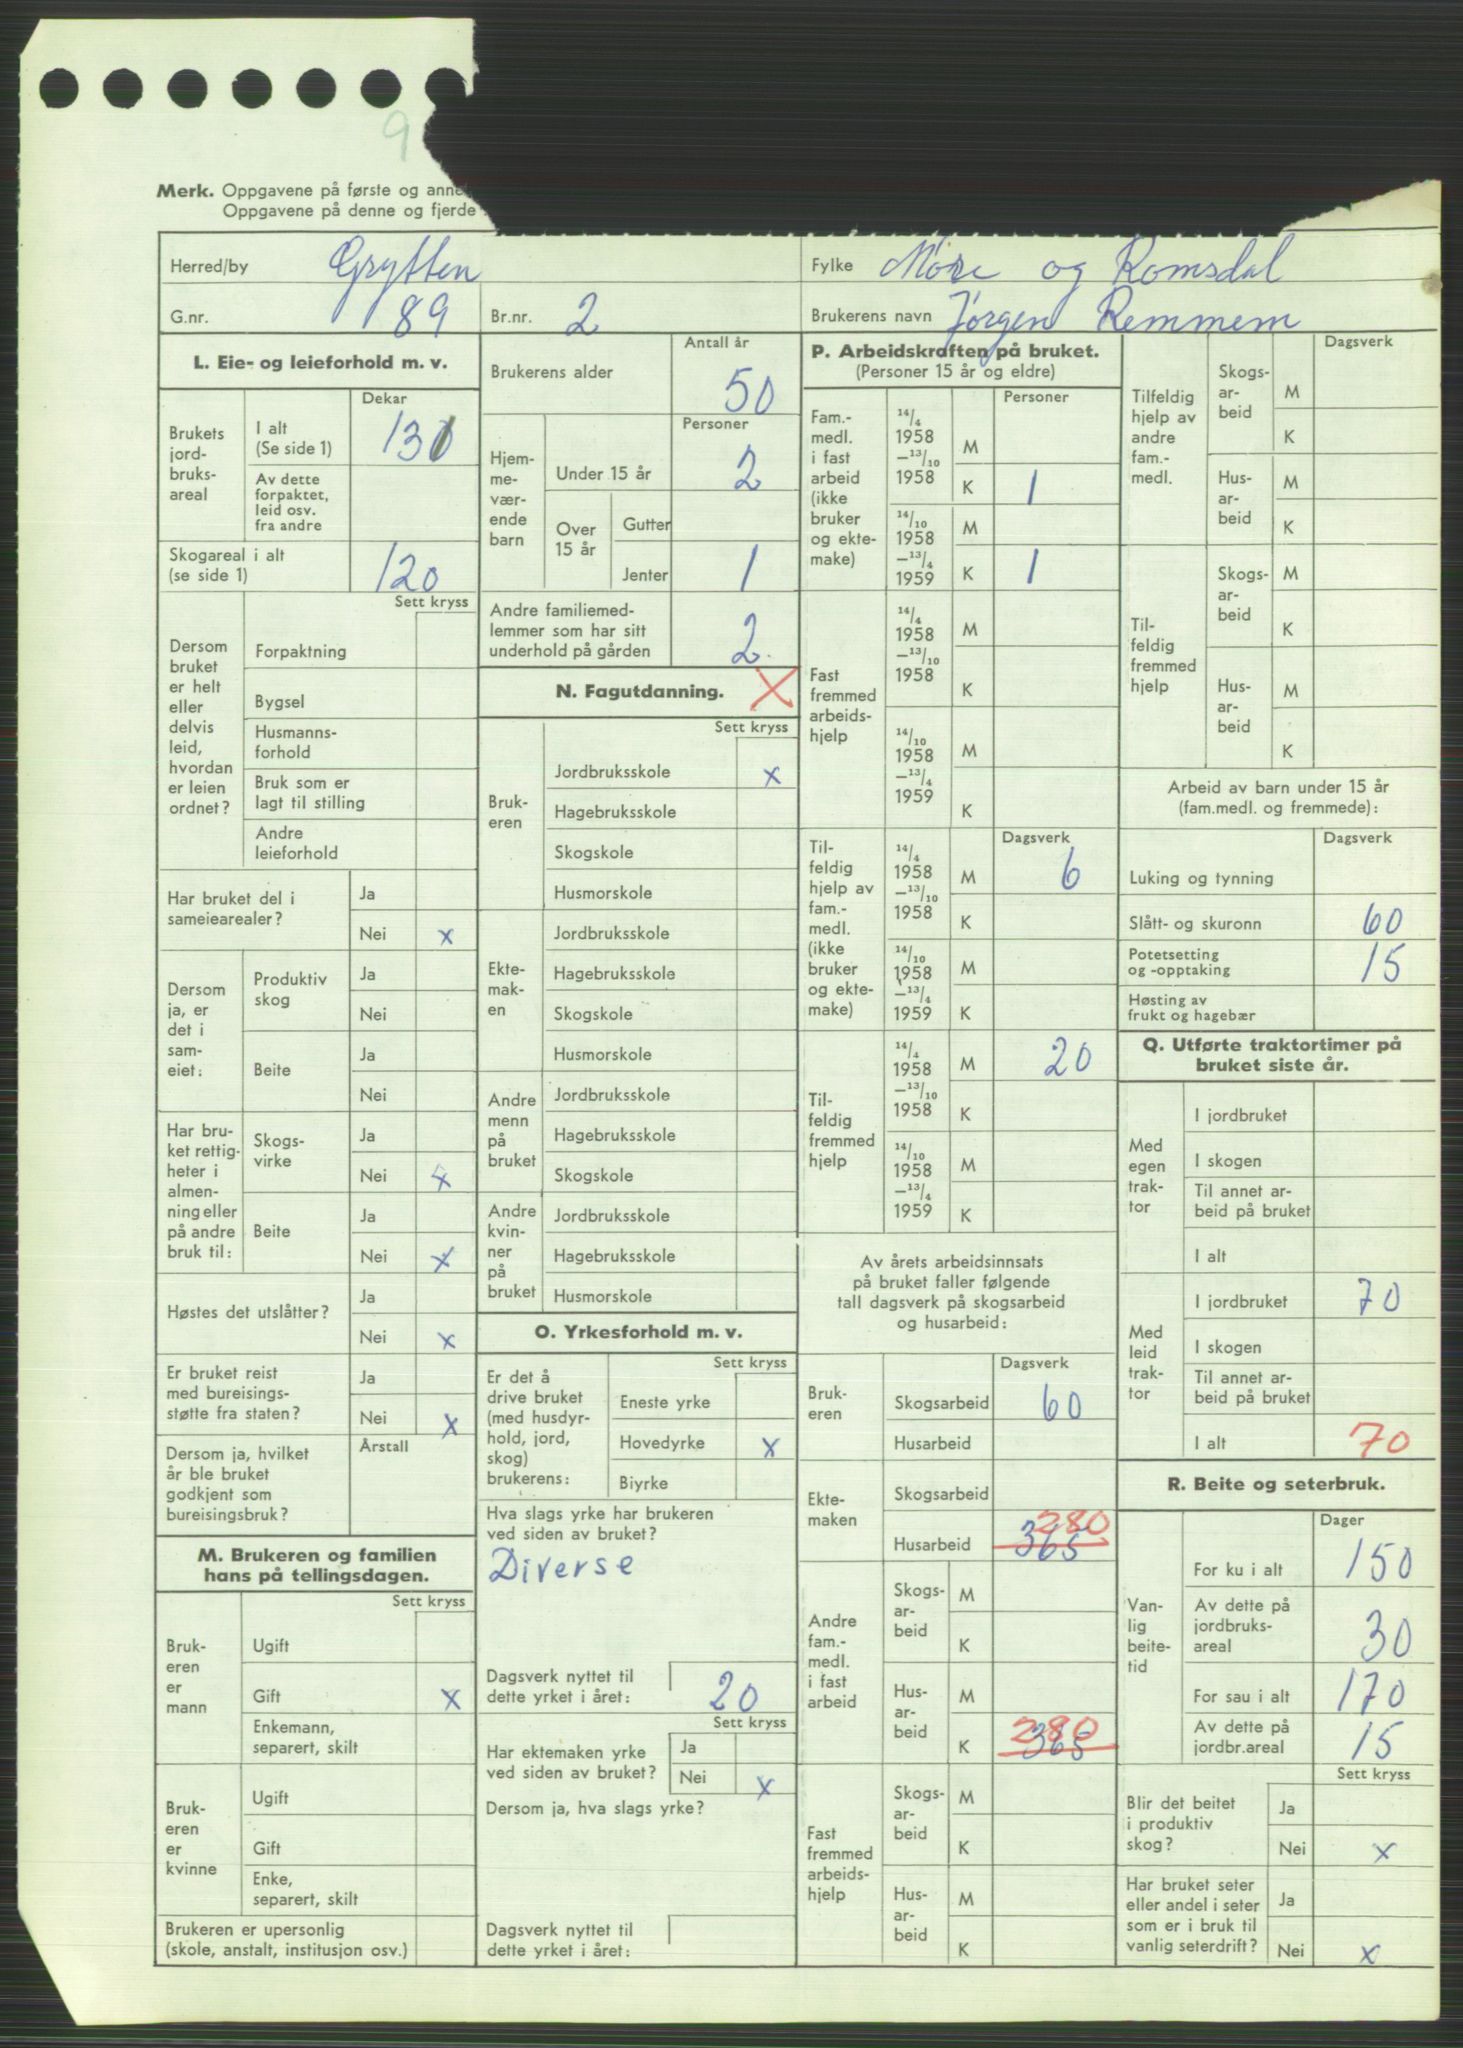 9
Merk. Oppgavene på første og
Oppgavene på denne og fjerde
Herred/by Grytten
Fylke Møre og Romsdal
G.nr. 89
Br.nr. 2
Brukerens navn Jørgen Remmem
L. Eie- og leieforhold m. v.
Dekar
Brukets jord-
bruks-
areal
I alt
(Se side 1) 130
Av dette
forpaktet,
leid osv.
fra andre
Skogareal i alt
(se side 1) 120
Sett kryss
Dersom
bruket
er helt
eller
delvis
leid,
hvordan
er leien
ordnet?
Forpaktning
Bygsel
Husmanns-
forhold
Bruk som er
lagt til stilling
Andre
leieforhold
Har bruket del i
sameiearealer?
Ja
Nei x
Dersom
ja, er
det i
sam-
eiet:
Produktiv
skog
Ja
Nei
Beite
Ja
Nei
Har bru-
ket rettig-
heter i
almen-
ning eller
på andre
bruk til:
Skogs-
virke
Ja
Nei x
Beite
Ja
Nei x
Høstes det utslåtter?
Ja
Nei x
Er bruket reist
med bureisings-
støtte fra staten?
Ja
Nei x
Dersom ja, hvilket
år ble bruket
godkjent som
bureisingsbruk?
Årstall
M. Brukeren og familien
hans på tellingsdagen.
Sett kryss
Bruk-
eren
er
mann
Ugift
Gift x
Enkemann,
separert, skilt
Bruk-
eren
er
kvinne
Ugift
Gift
Enke,
separert, skilt
Brukeren er upersonlig
(skole, anstalt, institusjon osv.)
Antall år
Brukerens alder 50
Personer
Hjem-
me-
vær-
ende
barn
Under 15 år 2
Over
15 år
Gutter
Jenter 1
Andre familiemed-
lemmer som har sitt
underhold på gården 2
N. Fagutdanning. X
Sett kryss
Bruk-
eren
Jordbruksskole x
Hagebruksskole
Skogskole
Husmorskole
Ekte-
mak-
en
Jordbruksskole
Hagebruksskole
Skogskole
Husmorskole
Andre
menn
på
bruket
Jordbruksskole
Hagebruksskole
Skogskole
Andre
kvin-
ner
på
bruket
Jordbruksskole
Hagebruksskole
Husmorskole
O. Yrkesforhold m. v.
Sett kryss
Er det å
drive bruket
(med husdyr-
hold, jord,
skog)
brukerens:
Eneste yrke
Hovedyrke x
Biyrke
Hva slags yrke har brukeren
ved siden av bruket?
Diverse
Dagsverk nyttet til
dette yrket i året: 20
Sett kryss
Har ektemaken yrke
ved siden av bruket?
Ja
Nei x
Dersom ja, hva slags yrke?
Dagsverk nyttet til
dette yrket i året:
P. Arbeidskraften på bruket.
(Personer 15 år og eldre)
Personer
Fam.-
medl.
i fast
arbeid
(ikke
bruker
og ekte-
make)
14/4
1958
—13/10
1958
M
K 1
14/10
1958
—13/4
1959
M
K 1
Fast
fremmed
arbeids-
hjelp
14/4
1958
—13/10
1958
M
K
14/10
1958
—13/4
1959
M
K
Dagsverk
Til-
feldig
hjelp av
fam.-
medl.
(ikke
bruker
og ekte-
make)
14/4
1958
—13/10
1958
M 6
K
14/10
1958
—13/4
1959
M
K
Til-
feldig
fremmed
hjelp
14/4
1958
—13/10
1958
M 20
K
14/10
1958
—13/4
1959
M
K
Av årets arbeidsinnsats
på bruket faller følgende
tall dagsverk på skogsarbeid
og husarbeid:
Dagsverk
Bruk-
eren
Skogsarbeid 60
Husarbeid
Ekte-
maken
Skogsarbeid
Husarbeid 365 280
Andre
fam.-
medl.
i fast
arbeid
Skogs-
ar-
beid
M
K
Hus-
ar-
beid
M
K 365 280
Fast
fremmed
arbeids-
hjelp
Skogs-
ar-
beid
M
K
Hus-
ar-
beid
M
K
Dagsverk
Tilfeldig
hjelp av
andre
fam.-
medl.
Skogs-
ar-
beid
M
K
Hus-
ar-
beid
M
K
Til-
feldig
fremmed
hjelp
Skogs-
ar-
beid
M
K
Hus-
ar-
beid
M
K
Arbeid av barn under 15 år
(fam.medl. og fremmede):
Dagsverk
Luking og tynning
Slått- og skuronn 60
Potetsetting
og -opptaking 15
Høsting av
frukt og hagebær
Q. Utførte traktortimer på
bruket siste år.
Med
egen
trak-
tor
I jordbruket
I skogen
Til annet ar-
beid på bruket
I alt
Med
leid
trak-
tor
I jordbruket 70
I skogen
Til annet ar-
beid på bruket
I alt 70
R. Beite og seterbruk.
Dager
Van-
lig
beite-
tid
For ku i alt 150
Av dette på
jordbruks-
areal 30
For sau i alt 170
Av dette på
jordbr.areal 15
Sett kryss
Blir det beitet
i produktiv
skog?
Ja
Nei x
Har bruket seter
eller andel i seter
som er i bruk til
vanlig seterdrift?
Ja
Nei x